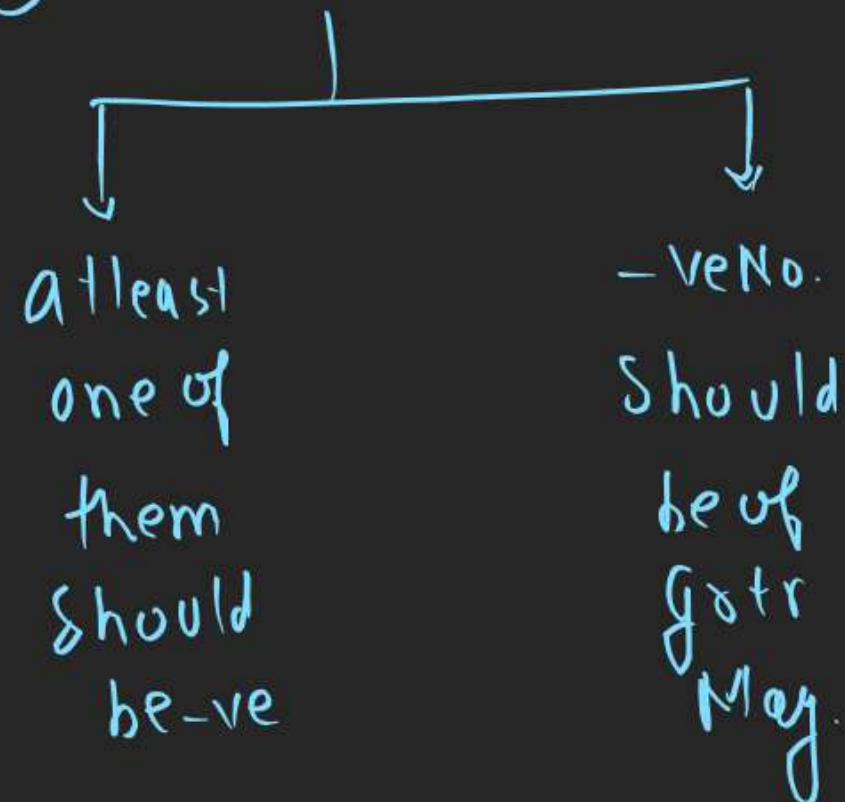 atleast
one of
them
should
be -ve
-ve No.
Should
be of
grtr
Mag.